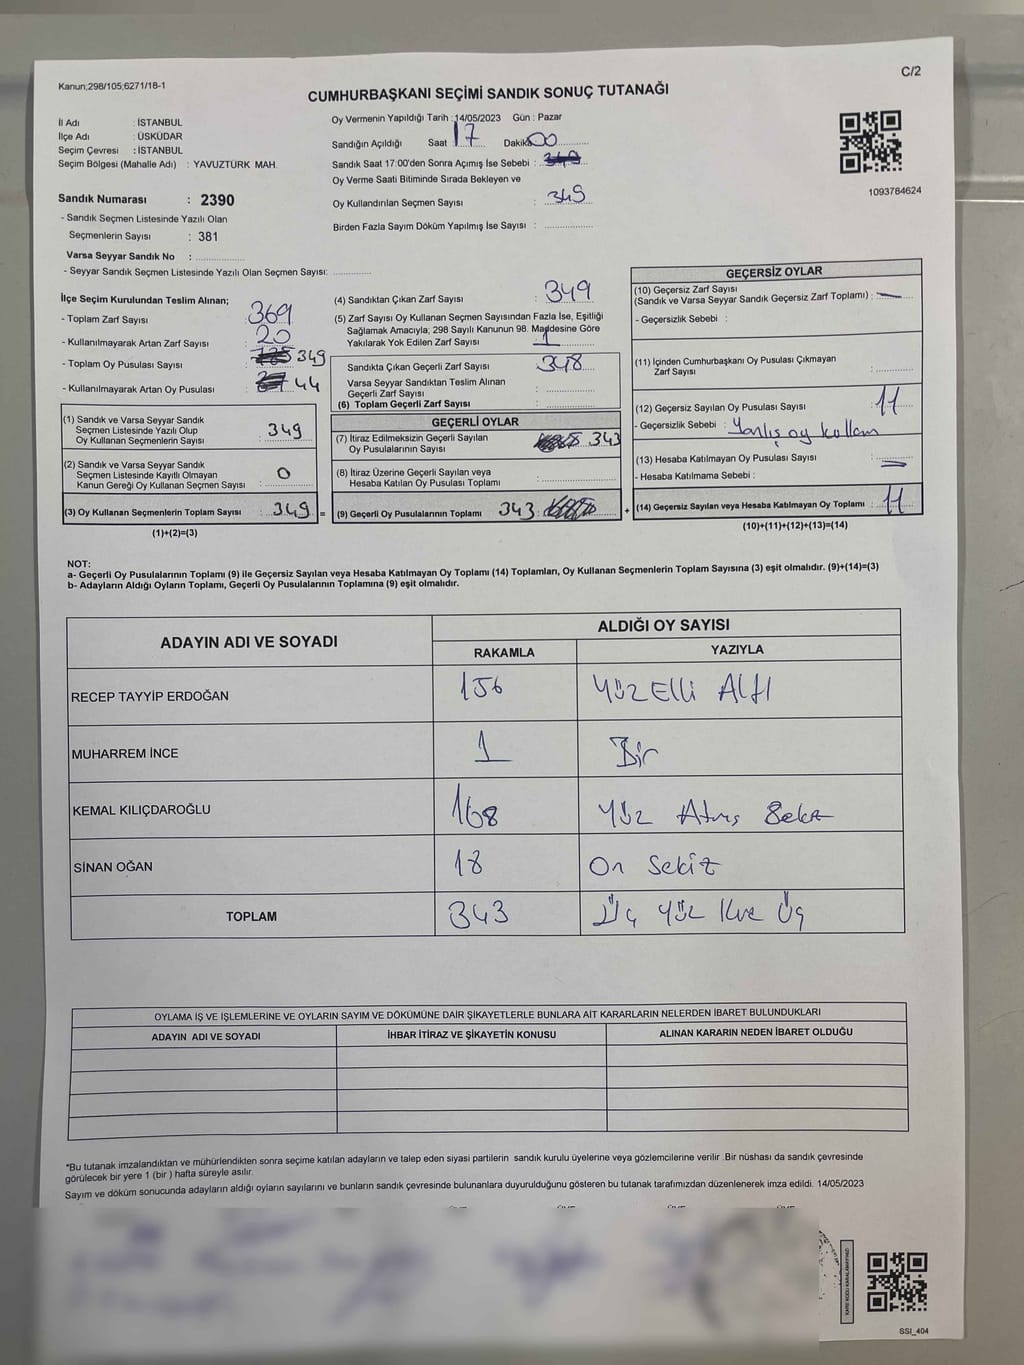 Kanun;298/105;6271/18-1
C/2
CUMHURBAŞKANI SEÇİMİ SANDIK SONUÇ TUTANAĞI
İl Adı : İSTANBUL
İlçe Adı : ÜSKÜDAR
Seçim Çevresi : İSTANBUL
Seçim Bölgesi (Mahalle Adı) : YAVUZTÜRK MAH.
Oy Vermenin Yapıldığı Tarih : 14/05/2023 Gün : Pazar
Sandığın Açıldığı Saat 17 Dakika 00
Sandık Saat 17:00'den Sonra Açımış İse Sebebi :
Oy Verme Saati Bitiminde Sırada Bekleyen ve
Oy Kullandırılan Seçmen Sayısı : 349
Birden Fazla Sayım Döküm Yapılmış İse Sayısı :
1093784624
Sandık Numarası : 2390
- Sandık Seçmen Listesinde Yazılı Olan
Seçmenlerin Sayısı : 381
Varsa Seyyar Sandık No :
- Seyyar Sandık Seçmen Listesinde Yazılı Olan Seçmen Sayısı:
İlçe Seçim Kurulundan Teslim Alınan;
- Toplam Zarf Sayısı : 369
- Kullanılmayarak Artan Zarf Sayısı : 20
- Toplam Oy Pusulası Sayısı : 349
- Kullanılmayarak Artan Oy Pusulası : 44
(1) Sandık ve Varsa Seyyar Sandık
Seçmen Listesinde Yazılı Olup
Oy Kullanan Seçmenlerin Sayısı : 349
(2) Sandık ve Varsa Seyyar Sandık
Seçmen Listesinde Kayıtlı Olmayan
Kanun Gereği Oy Kullanan Seçmen Sayısı : 0
(3) Oy Kullanan Seçmenlerin Toplam Sayısı : 349 =
(1)+(2)=(3)
(4) Sandıktan Çıkan Zarf Sayısı : 349
(5) Zarf Sayısı Oy Kullanan Seçmen Sayısından Fazla İse, Eşitliği
Sağlamak Amacıyla; 298 Sayılı Kanunun 98. Maddesine Göre
Yakılarak Yok Edilen Zarf Sayısı : 1
Sandıkta Çıkan Geçerli Zarf Sayısı : 348
Varsa Seyyar Sandıktan Teslim Alınan
Geçerli Zarf Sayısı :
(6) Toplam Geçerli Zarf Sayısı :
GEÇERLİ OYLAR
(7) İtiraz Edilmeksizin Geçerli Sayılan
Oy Pusulalarının Sayısı : 343
(8) İtiraz Üzerine Geçerli Sayılan veya
Hesaba Katılan Oy Pusulası Toplamı :
(9) Geçerli Oy Pusulalarının Toplamı 343 +
GEÇERSİZ OYLAR
(10) Geçersiz Zarf Sayısı
(Sandık ve Varsa Seyyar Sandık Geçersiz Zarf Toplamı) : —
- Geçersizlik Sebebi :
(11) İçinden Cumhurbaşkanı Oy Pusulası Çıkmayan
Zarf Sayısı :
(12) Geçersiz Sayılan Oy Pusulası Sayısı : 11
- Geçersizlik Sebebi : Yanlış oy kullanı
(13) Hesaba Katılmayan Oy Pusulası Sayısı : —
- Hesaba Katılmama Sebebi :
(14) Geçersiz Sayılan veya Hesaba Katılmayan Oy Toplamı : 11
(10)+(11)+(12)+(13)=(14)
NOT:
a- Geçerli Oy Pusulalarının Toplamı (9) ile Geçersiz Sayılan veya Hesaba Katılmayan Oy Toplamı (14) Toplamları, Oy Kullanan Seçmenlerin Toplam Sayısına (3) eşit olmalıdır. (9)+(14)=(3)
b- Adayların Aldığı Oyların Toplamı, Geçerli Oy Pusulalarının Toplamına (9) eşit olmalıdır.
ADAYIN ADI VE SOYADI
ALDIĞI OY SAYISI
RAKAMLA YAZIYLA
RECEP TAYYİP ERDOĞAN 156 Yüz Elli Altı
MUHARREM İNCE 1 Bir
KEMAL KILIÇDAROĞLU 168 Yüz Atmış Sekiz
SİNAN OĞAN 18 On Sekiz
TOPLAM 343 Üç Yüz Kırk Üç
OYLAMA İŞ VE İŞLEMLERİNE VE OYLARIN SAYIM VE DÖKÜMÜNE DAİR ŞİKAYETLERLE BUNLARA AİT KARARLARIN NELERDEN İBARET BULUNDUKLARI
ADAYIN ADI VE SOYADI İHBAR İTİRAZ VE ŞİKAYETİN KONUSU ALINAN KARARIN NEDEN İBARET OLDUĞU
*Bu tutanak imzalandıktan ve mühürlendikten sonra seçime katılan adayların ve talep eden siyasi partilerin sandık kurulu üyelerine veya gözlemcilerine verilir .Bir nüshası da sandık çevresinde
görülecek bir yere 1 (bir ) hafta süreyle asılır.
Sayım ve döküm sonucunda adayların aldığı oyların sayılarını ve bunların sandık çevresinde bulunanlara duyurulduğunu gösteren bu tutanak tarafımızdan düzenlenerek imza edildi. 14/05/2023
KARE KODU KARALAMAYINIZ!
SSI_404